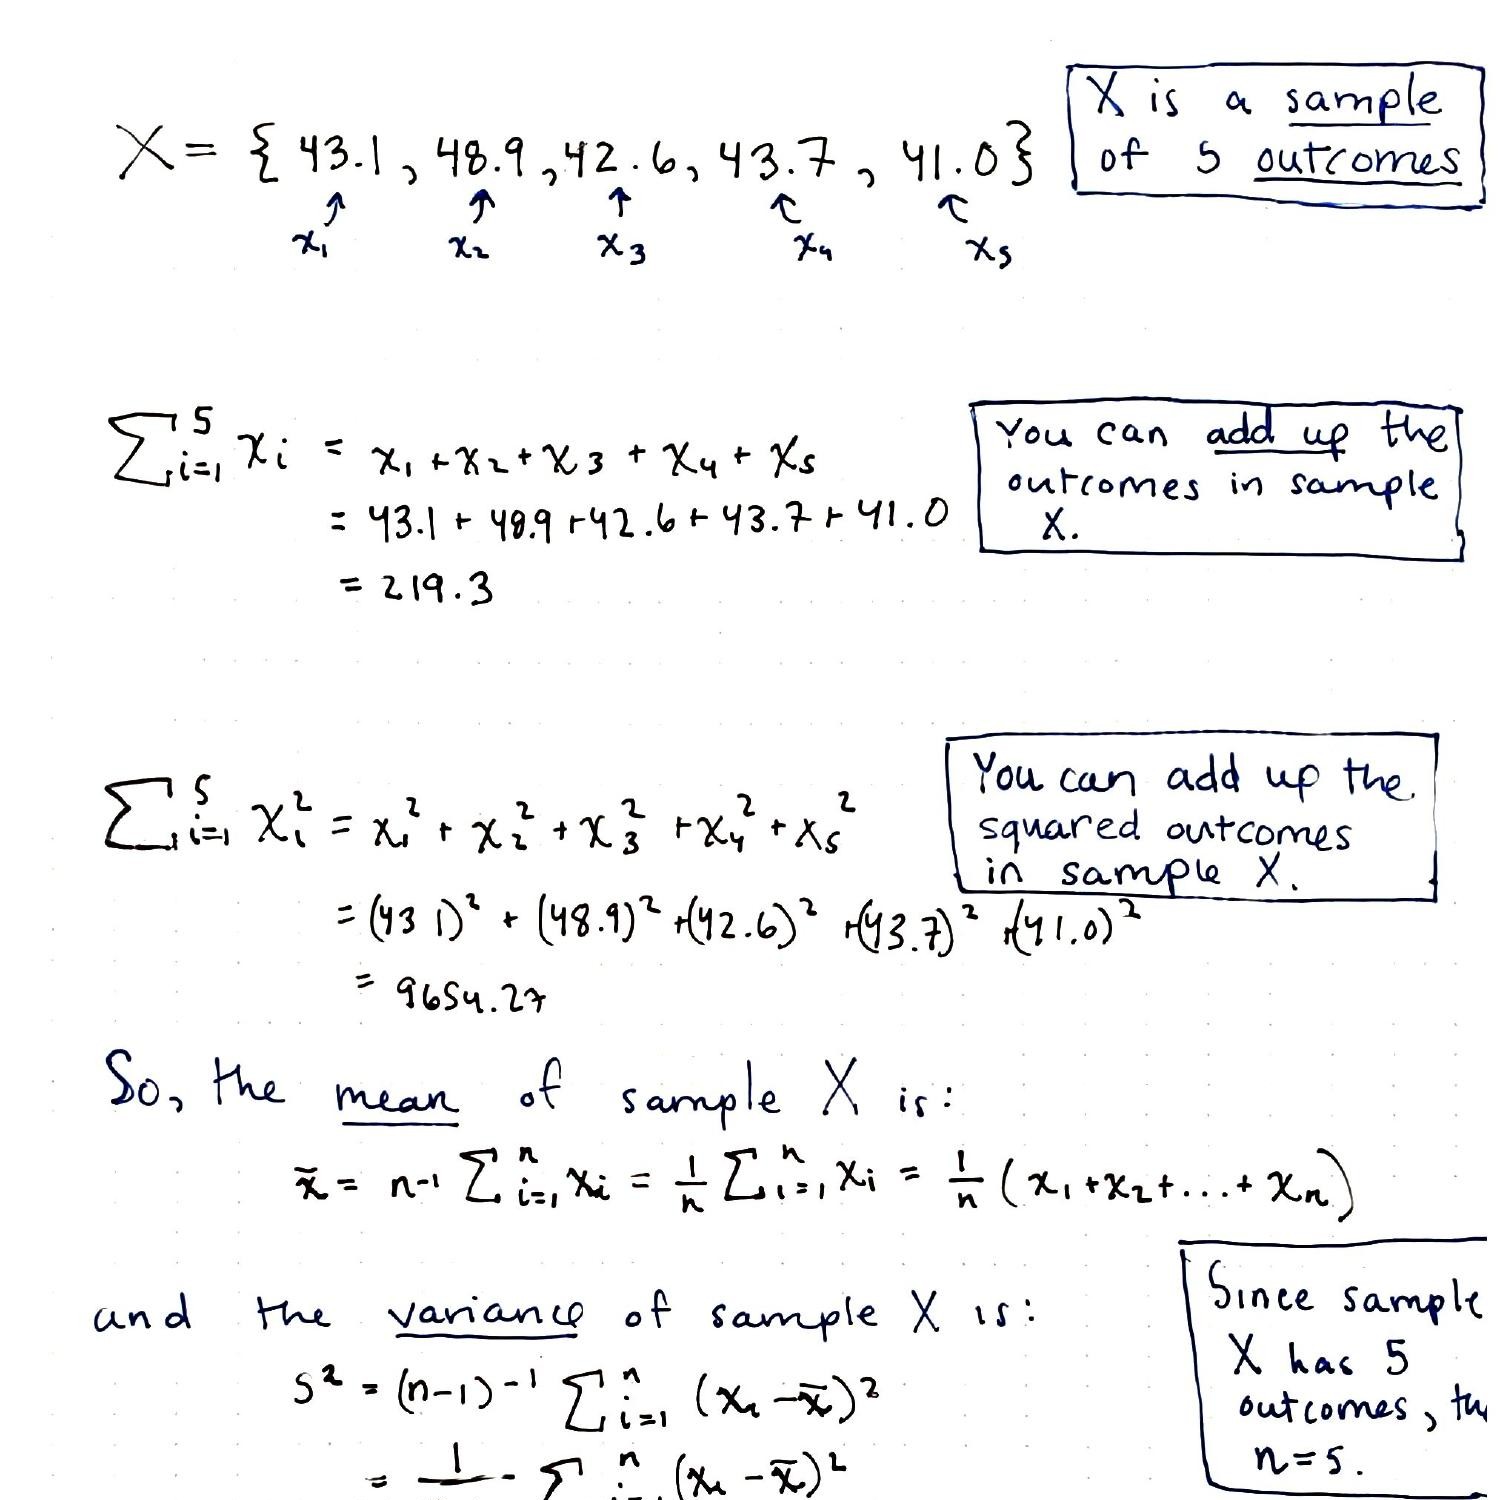 X = { 43.1 , 48.9 , 42.6 , 43.7 , 41.0 }
x₁ x₂ x₃ x₄ x₅
X is a sample
of 5 outcomes
∑ᵢ₌₁⁵ xᵢ = x₁ + x₂ + x₃ + x₄ + x₅
= 43.1 + 48.9 + 42.6 + 43.7 + 41.0
= 219.3
You can add up the
outcomes in sample
X.
∑ᵢ₌₁⁵ xᵢ² = x₁² + x₂² + x₃² + x₄² + x₅²
= (43 1)² + (48.9)² + (42.6)² + (43.7)² + (41.0)²
= 9654.27
You can add up the
squared outcomes
in sample X.
So, the mean of sample X is:
x̄ = n-1 ∑ᵢ₌₁ⁿ xᵢ = 1/n ∑ᵢ₌₁ⁿ xᵢ = 1/n ( x₁ + x₂ + ... + xₙ )
and the variance of sample X is:
s² = (n-1)⁻¹ ∑ᵢ₌₁ⁿ (xᵢ - x̄)²
= 1 ∑ᵢ₌₁ⁿ (xᵢ - x̄)²
Since sample
X has 5
outcomes,
n = 5.